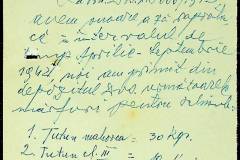 avem onoare a vă raporta
că în intervalul de
timp Aprilie - Septembrie
1942, noi am primit din
depozitul dvs. următoarele
mărfuri pentru
1. Tutun mahorca = 30 kgr.
2. Tutun cl. III =